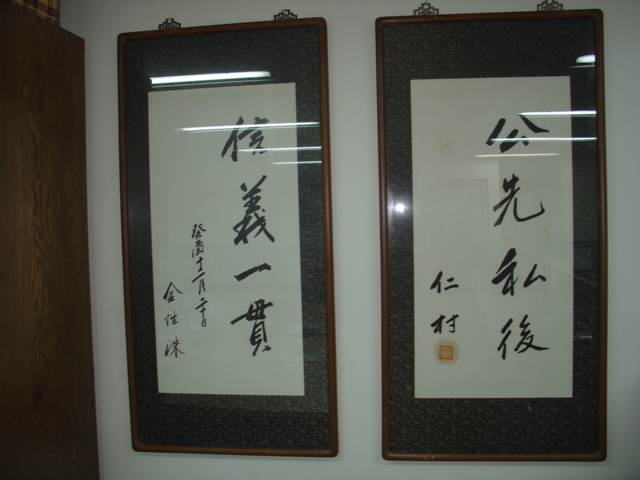 公先私後
仁村
信義一貫
癸酉十一月二十日
金性洙